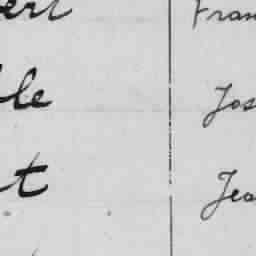 ert Fran
lle Jos
t Jea